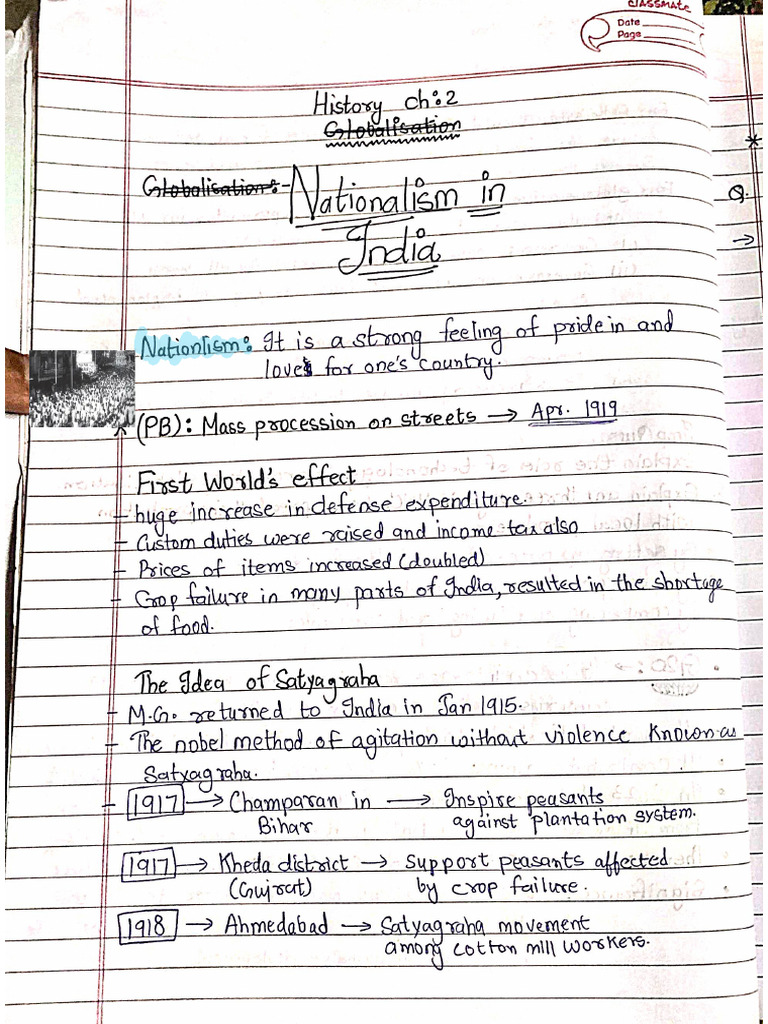 classmate
Date
Page
History ch:2
Globalisation
Globalisation:- Nationalism in
India
Nationlism: It is a strong feeling of pride in and
love for one's country.
(PB): Mass procession on streets → Apr. 1919
First World's effect
- huge increase in defense expenditure.
- Custom duties were raised and income tax also
- Prices of items increased (doubled)
- Crop failure in many parts of India, resulted in the shortage
of food.
The Idea of Satyagraha
- M.G. returned to India in Jan 1915.
- The nobel method of agitation without violence known as
Satyagraha.
- 1917 → Champaran in → Inspire peasants
Bihar against plantation system.
1917 → Kheda district → Support peasants affected
(Gujrat) by crop failure.
1918 → Ahmedabad → Satyagraha movement
among cotton mill workers.
Q.